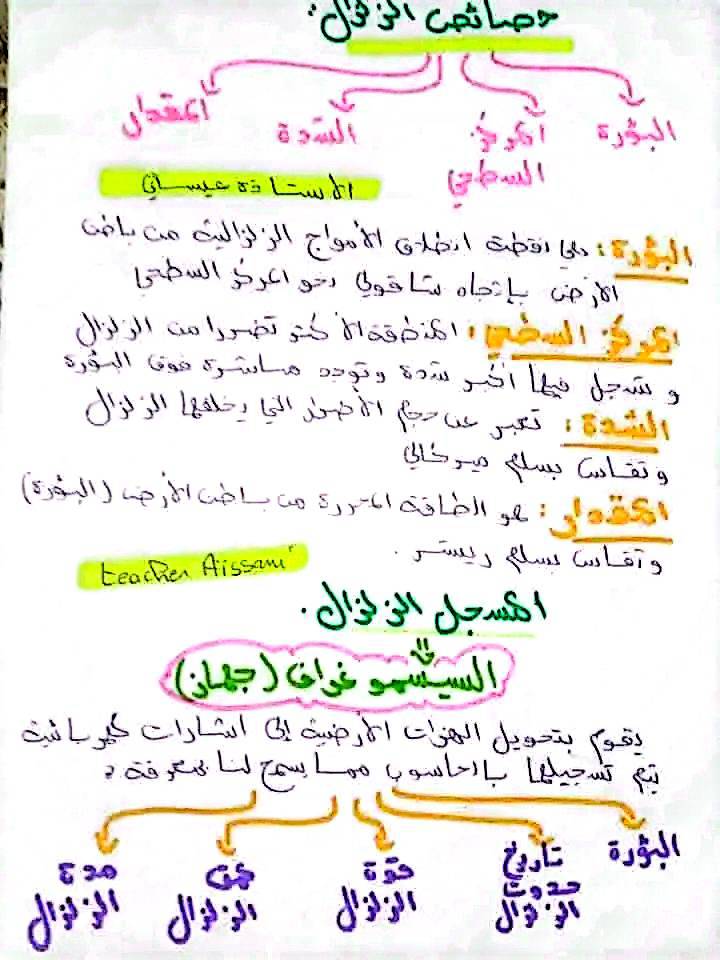 خصائص الزلزال:
البؤرة المركز السطحي الشدة المقدار
الأستاذة عيساني
البؤرة: هي نقطة انطلاق الأمواج الزلزالية من باطن
الأرض بإتجاه شاقولي نحو المركز السطحي
المركز السطحي: المنطقة الأكثر تضررا من الزلزال
و تسجل فيها أكبر شدة وتوجد مباشرة فوق البؤرة
الشدة: تعبر عن حجم الأضرار التي يخلفها الزلزال
وتقاس بسلم ميركالي
المقدار: هو الطاقة المحررة من باطن الأرض (البؤرة)
وتقاس بسلم ريشتر.
teacher Aissani
المسجل الزلزال.
السيسموغراف (جهاز)
يقوم بتحويل الهزات الأرضية إلى اشارات كهربائية
يتم تسجيلها بالحاسوب مما يسمح لنا بمعرفة:
البؤرة تاريخ حدوث الزلزال قوة الزلزال عمق الزلزال مدة الزلزال